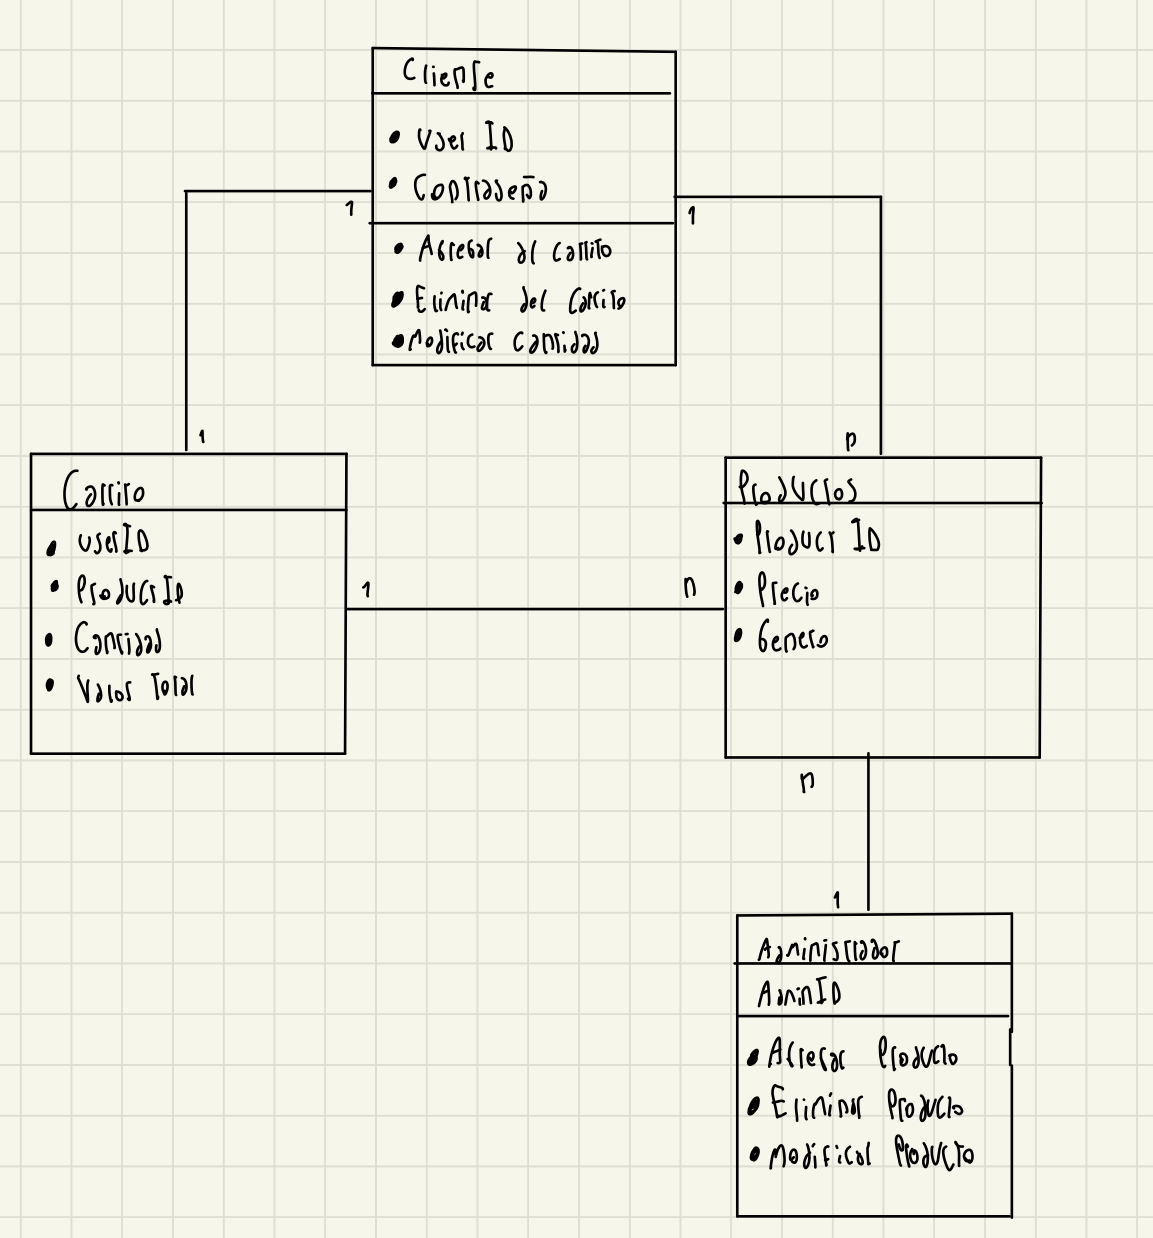 Cliente
• User ID
• Contraseña
1
1
• Agregar al carrito
• Eliminar del Carrito
• Modificar Cantidad
1
n
Carrito
• userID
• ProductID
• Cantidad
• Valor Total
1
n
Productos
• Product ID
• Precio
• Genero
n
1
Administrador
AdminID
• Agregar Producto
• Eliminar Producto
• Modificar Producto